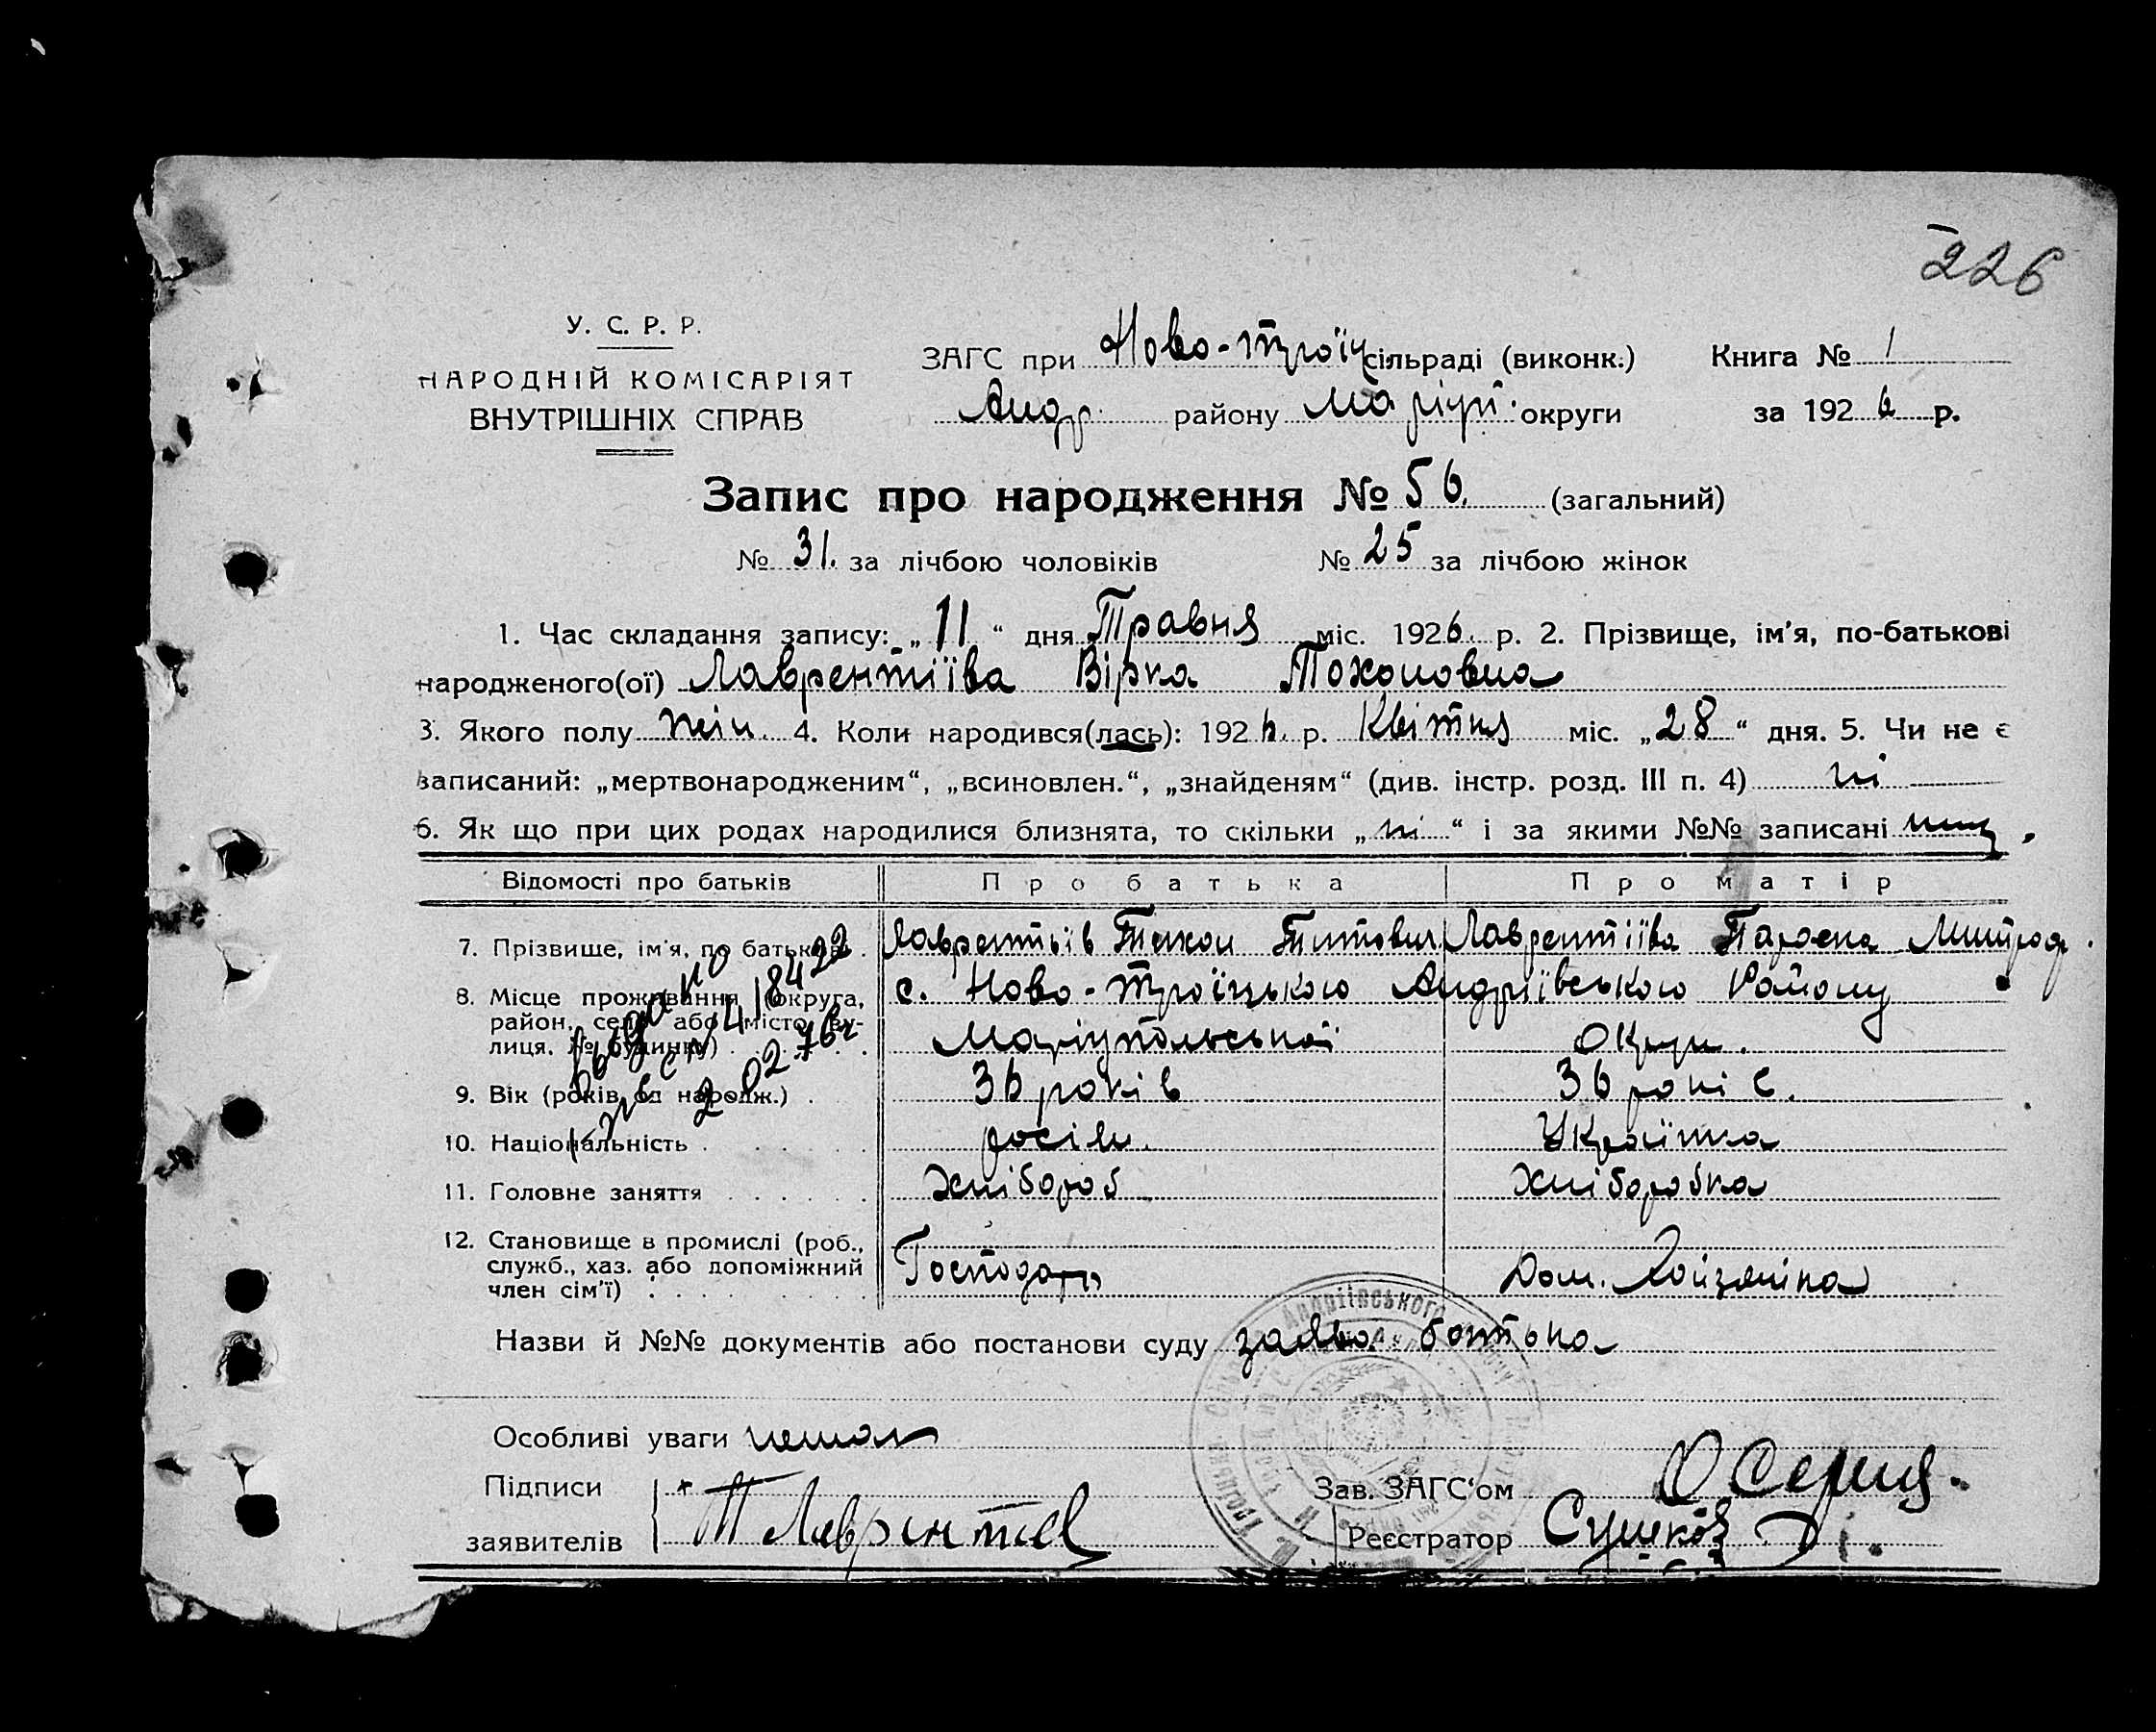 226
У. С. Р. Р.
НАРОДНІЙ КОМІСАРІЯТ
ВНУТРІШНІХ СПРАВ
ЗАГС при Ново-Троїц сільраді (виконк.) Книга № 1
Андр. району Маріуп. округи за 1926 р.
Запис про народження № 56. (загальний)
№ 31. за лічбою чоловіків № 25 за лічбою жінок
1. Час складання запису: „11“ дня Травня міс. 1926. р. 2. Прізвище, ім'я, по-батькові
народженого(ої) Лаврентіїва Вірка Тохоновна
3. Якого полу жін. 4. Коли народився(лась): 1926. р. Квітня міс. „28“ дня. 5. Чи не є
записаний: „мертвонародженим“, „всиновлен.“, „знайденям“ (див. інстр. розд. III п. 4) ні
6. Як що при цих родах народилися близнята, то скільки „ні“ і за якими №№ записані
Відомості про батьків Про батька Про матір
7. Прізвище, ім'я, по батькові . Лаврентьїв Тихон Титович Лаврентіїва Параска Митроф.
8. Місце проживання (округа,
район, село або місто, ву-
лиця. № будинку)
с. Ново-Троїцького Андріївського Району
Маріупольської Округи.
9. Вік (років од народж.) . 36 років 36 років.
10. Національність . росіян. Українка
11. Головне заняття хлібороб хліборобка
12. Становище в промислі (роб.,
служб., хаз. або допоміжний
член сім'ї)
Господарь Дом. Хозяйка
Выдано
2 02 76г
Назви й №№ документів або постанови суду заява батька
Особливі уваги немає
Підписи
заявителів Т Лаврентев
Зав. ЗАГС'ом
Реєстратор